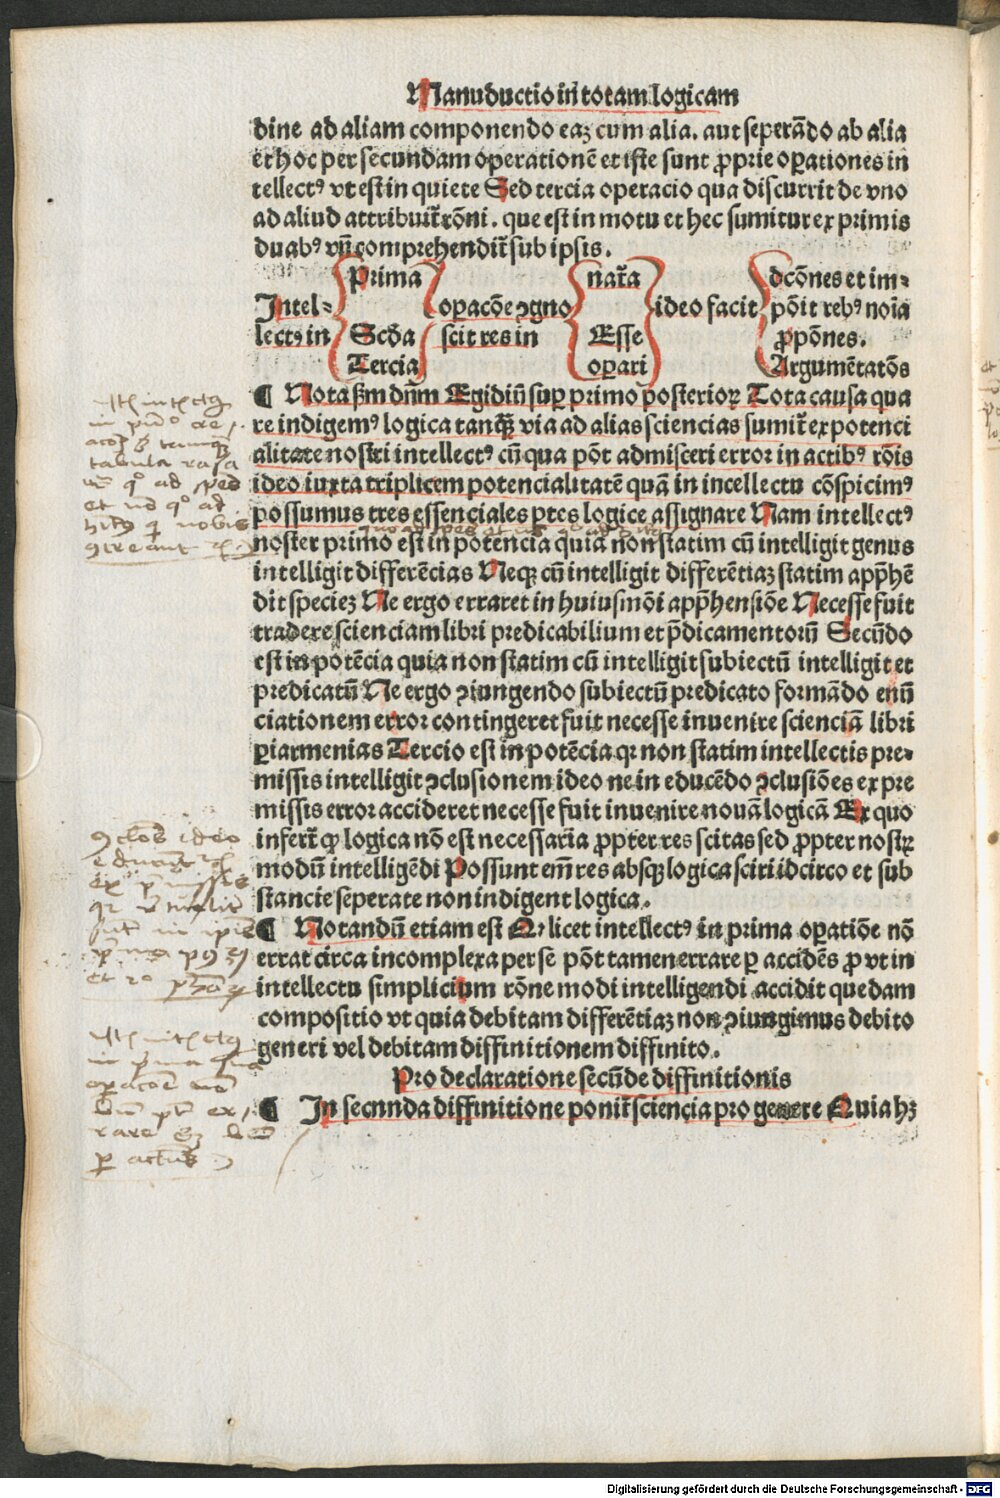 Manuductio in totam logicam
dine ad aliam componendo eaꝫ cum alia. aut seperādo ab alia
et hoc per secundam operationē et iste sunt ꝓprie oꝑationes in
tellectꝰ vt est in quiete Sed tercia operacio qua discurrit de vno
ad aliud attribuit᷑ rōni. que est in motu et hec sumitur ex primis
duabꝰ vn̄ comprehendit᷑ sub ipsis.
Prima nat᷑a dcōnes et im-
Intel- oꝑacōe ꝯgno ideo facit pōit rebꝰ noīa
lectꝰ in Scd̄a scit res in Esse ꝓpōnes.
Tercia oꝑari Argumētatōs
¶ Nota ẜm dn̄m Egidiū suꝑ primo posterioꝝ Tota causa qua
re indigemꝰ logica tanqꝫ via ad alias sciencias sumit᷑ ex potenci
alitate nostri intellectꝰ cū qua pōt admisceri error in actibꝰ rōis
ideo iuxta triplicem potencialitatē quā in incellectu cōspicimꝰ
possumus tres essenciales ꝑtes logice assignare Nam intellectꝰ
noster primo est in potencia quia non statim cū intelligit genus
intelligit differēcias Neqꝫ cū intelligit differētiaꝫ statim app̄hē
dit specieꝫ Ne ergo erraret in huiusmōi app̄hensiōe Necesse fuit
tradere scienciam libri predicabilium et p̄dicamentorū Secūdo
est in potēcia quia non statim cū intelligit subiectū intelligit et
predicatū Ne ergo ꝯiungendo subiectū predicato formādo enū
ciationem error contingeret fuit necesse inuenire scienciā libri
ꝑiarmenias Tercio est in potēcia qꝛ non statim intellectis pre-
missis intelligit ꝯclusionem ideo ne in educēdo ꝯclusiōes ex pre
missis error accideret necesse fuit inuenire nouā logicā Ex quo
infert᷑ ꝙ logica nō est necessaria ꝓpter res scitas sed ꝓpter nostꝝ
modū intelligēdi Possunt em̄ res absqꝫ logica sciri idcirco et sub
stancie seperate non indigent logica.
¶ Notandū etiam est Qꝛ licet intellectꝰ in prima oꝑatiōe nō
errat circa incomplexa per se pōt tamen errare ꝑ accidēs ꝓ vt in
intellectu simplicium rōne modi intelligendi accidit quedam
compositio vt quia debitam differētiaꝫ non ꝯiungimus debito
generi vel debitam diffinitionem diffinito.
Pro declaratione secūde diffinitionis
¶ In secnnda diffinitione ponit᷑ sciencia pro genere Quia hꝫ
tabula rasa
Digitalisierung gefördert durch die Deutsche Forschungsgemeinschaft - DFG